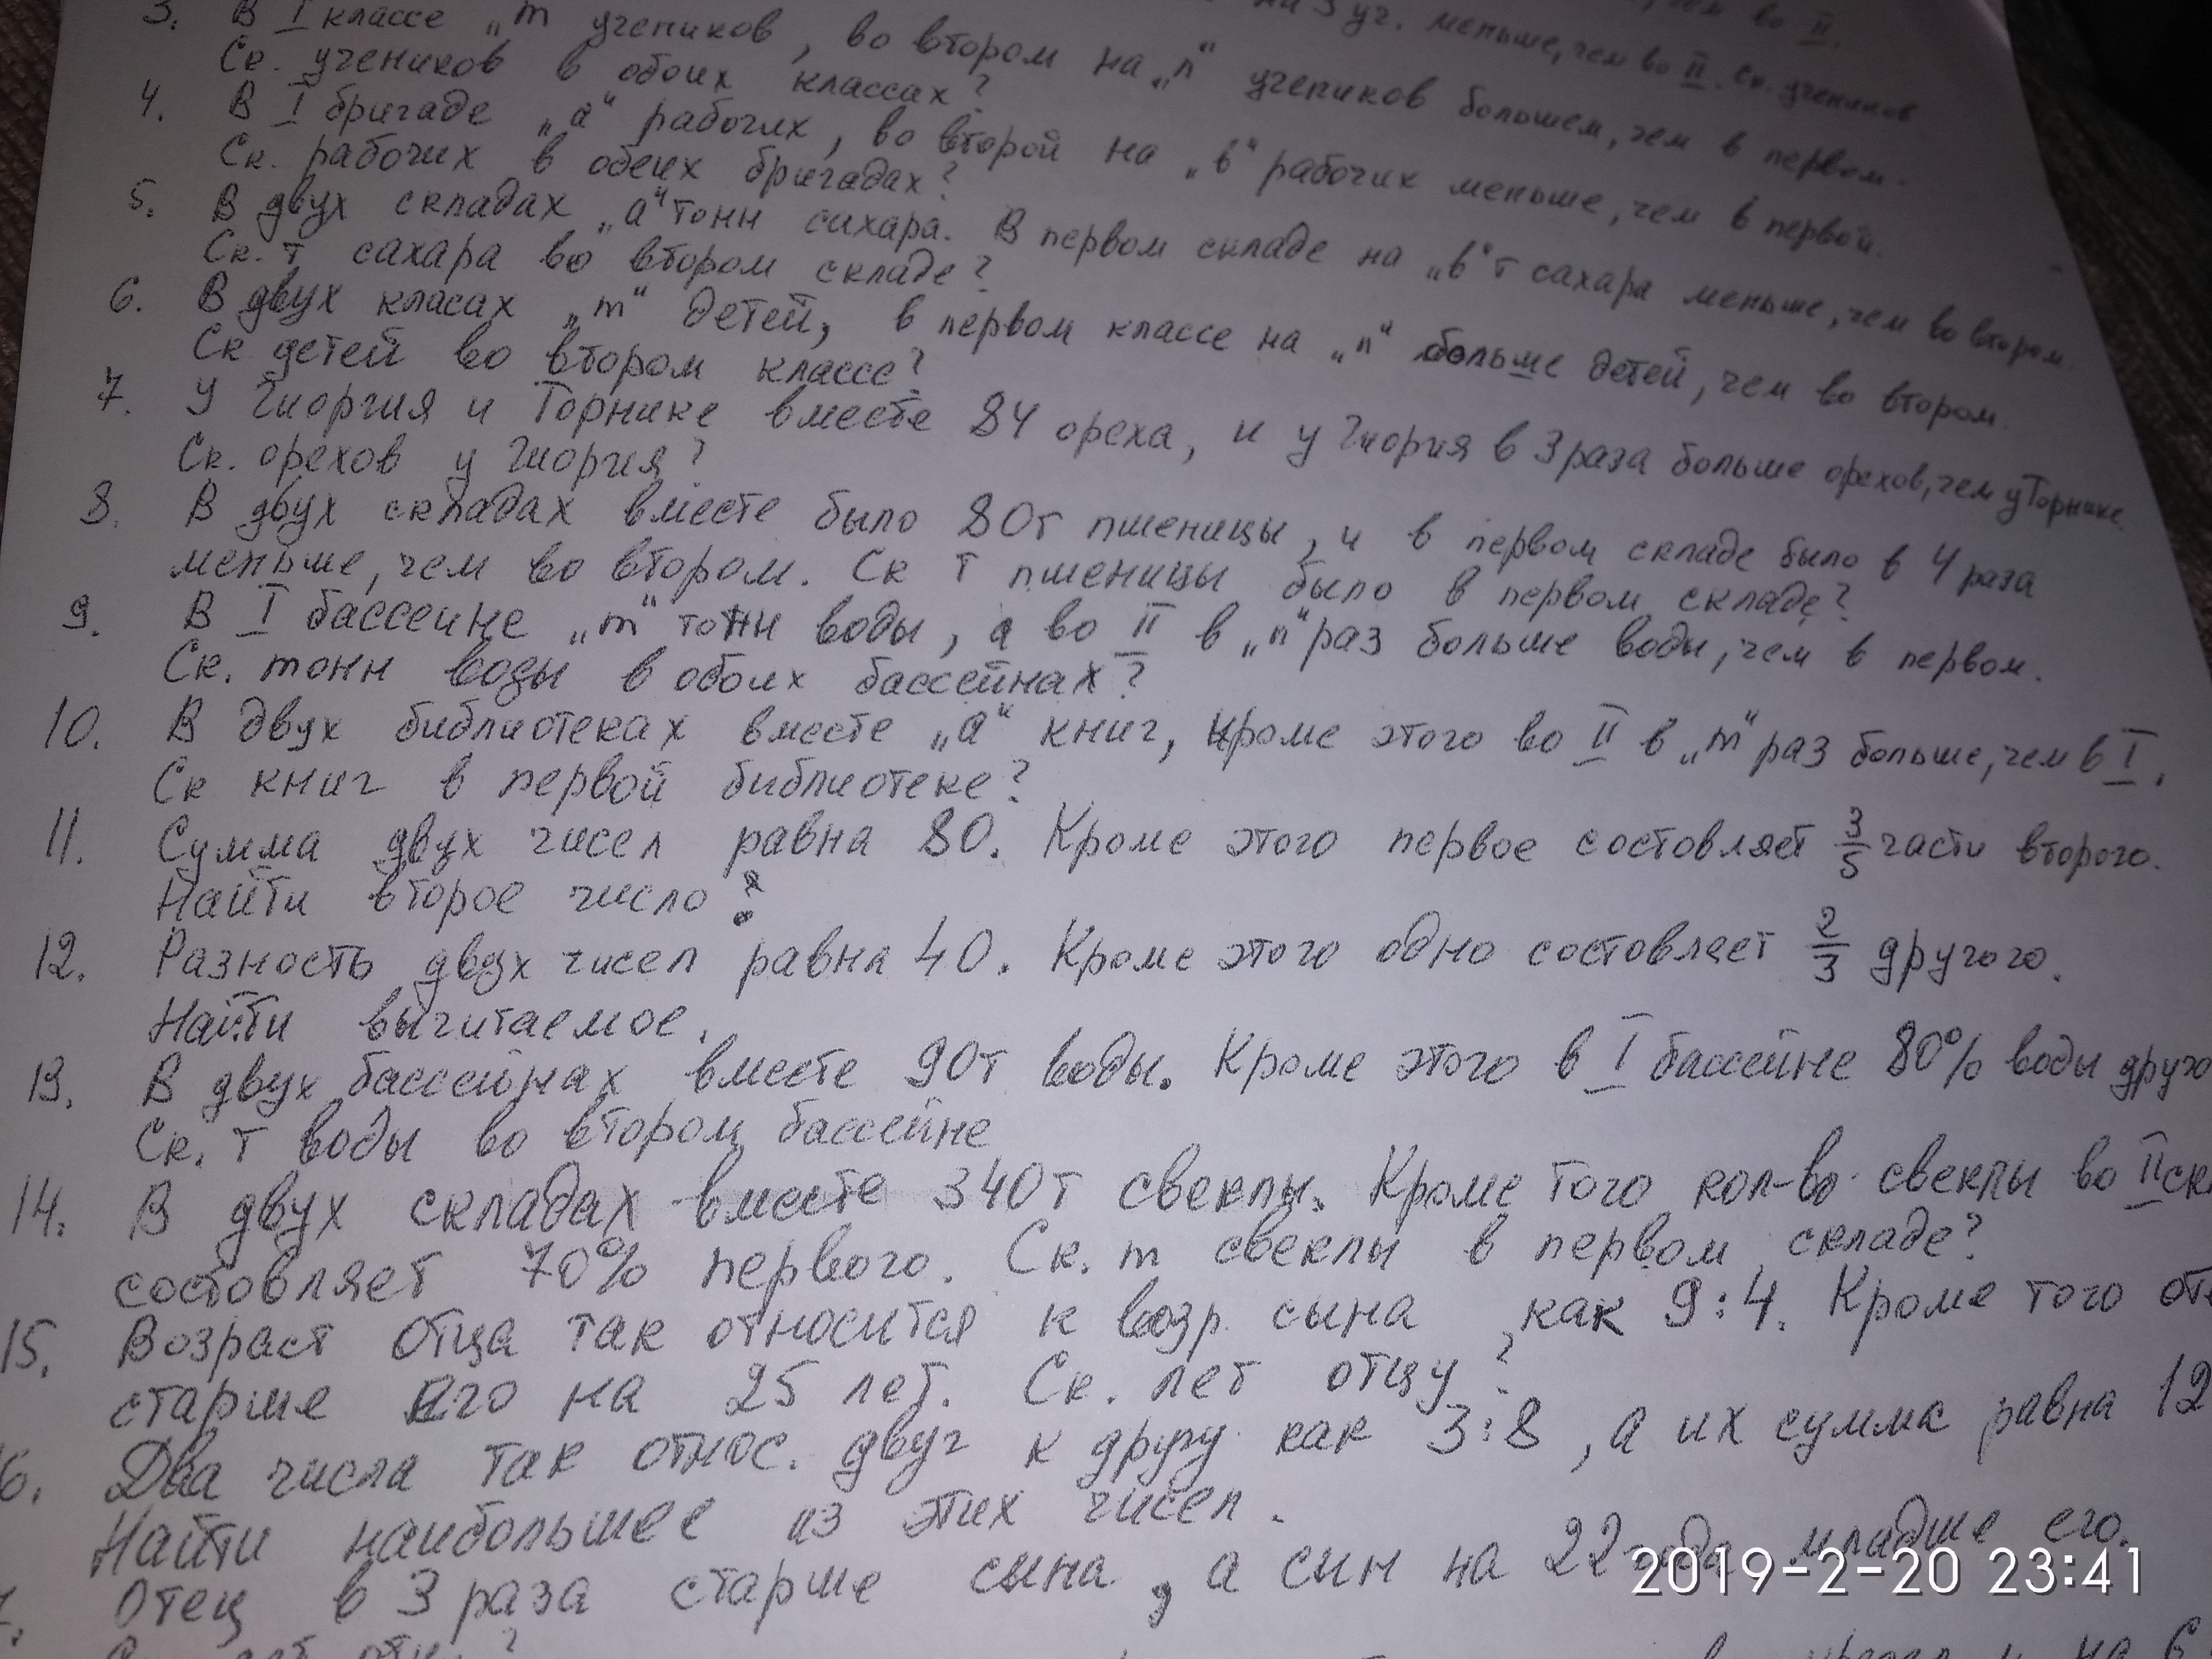 на 3 уч. меньше, чем во II. Ск. учеников
3. В I классе „m учеников, во втором на „n“ учеников большем, чем в первом.
Ск. учеников в обоих классах?
4. В I бригаде „а“ рабочих, во второй на „в“ рабочих меньше, чем в первой.
Ск. рабочих в обеих бригадах?
5. В двух складах „а“ тонн сахара. В первом складе на „в“ т сахара меньше, чем во втором.
Ск. т сахара во втором складе?
6. В двух класах „m“ детей, в первом классе на „n“ больше детей, чем во втором.
Ск детей во втором классе?
7. У Гиоргия и Торнике вместе 84 ореха, и у Гиоргия в 3 раза больше орехов, чем у Торнике.
Ск. орехов у Гиоргия?
8. В двух складах вместе было 80т пшеницы, и в первом складе было в 4 раза
меньше, чем во втором. Ск т пшеницы было в первом складе?
9. В I бассеине „m“ тонн воды, а во II в „n“ раз больше воды, чем в первом.
Ск. тонн воды в обоих бассейнах?
10. В двух библиотеках вместе „а“ книг, кроме этого во II в „m“ раз больше, чем в I.
Ск книг в первой библиотеке?
11. Сумма двух чисел равна 80. Кроме этого первое состовляет 3/5 части второго.
Найти второе число?
12. Разность двух чисел равна 40. Кроме этого одно состовляет 2/3 другого.
Найти вычитаемое.
13. В двух бассейнах вместе 90т воды. Кроме этого в I бассейне 80% воды друго
Ск. т воды во втором бассейне
14. В двух складах вместе 340т свеклы. Кроме того кол-во свеклы во II ск
состовляет 70% первого. Ск. т свеклы в первом складе?
15. Возраст отца так относится к возр. сына, как 9:4. Кроме того от
старше его на 25 лет. Ск. лет отцу?
6. Два числа так относ. двуг к другу как 3:8, а их сумма равна 12
Найти наибольшее из этих чисел.
Отец в 3 раза старше сына, а син на 22 года младше его.
2019-2-20 23:41